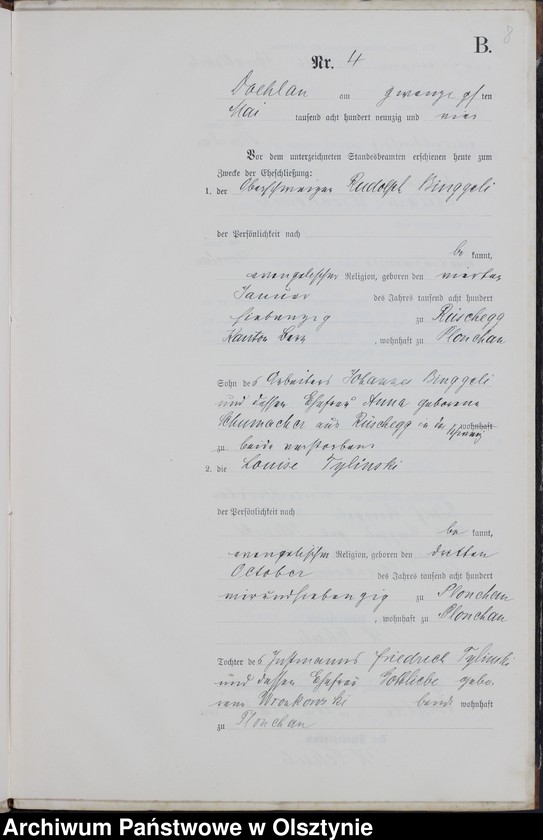 B. 8
Nr. 4
Doehlau am zwanzigsten
Mai tausend acht hundert neunzig und vier
Vor dem unterzeichneten Standesbeamten erschienen heute zum
Zwecke der Eheschließung:
1. der Oberschweizer Rudolph Binggeli
der Persönlichkeit nach
be kannt,
evangelischer Religion, geboren den vierten
Januar des Jahres tausend acht hundert
siebenzig zu Rüschegg
Kanton Bern, wohnhaft zu Plonchau
Sohn des Arbeiters Johannes Binggeli
und dessen Ehefrau Anna geborene
Schumacher aus Rüschegg in der Schweiz wohnhaft
zu beide verstorben
2. die Louise Tylinski
der Persönlichkeit nach
be kannt,
evangelischer Religion, geboren den dritten
October des Jahres tausend acht hundert
vierundsiebenzig zu Plonchau
, wohnhaft zu Plonchau
Tochter des Instmanns Friedrich Tylinski
und dessen Ehefrau Gottliebe gebo
rene Wronkowski beide wohnhaft
zu Plonchau
Archiwum Państwowe w Olsztynie